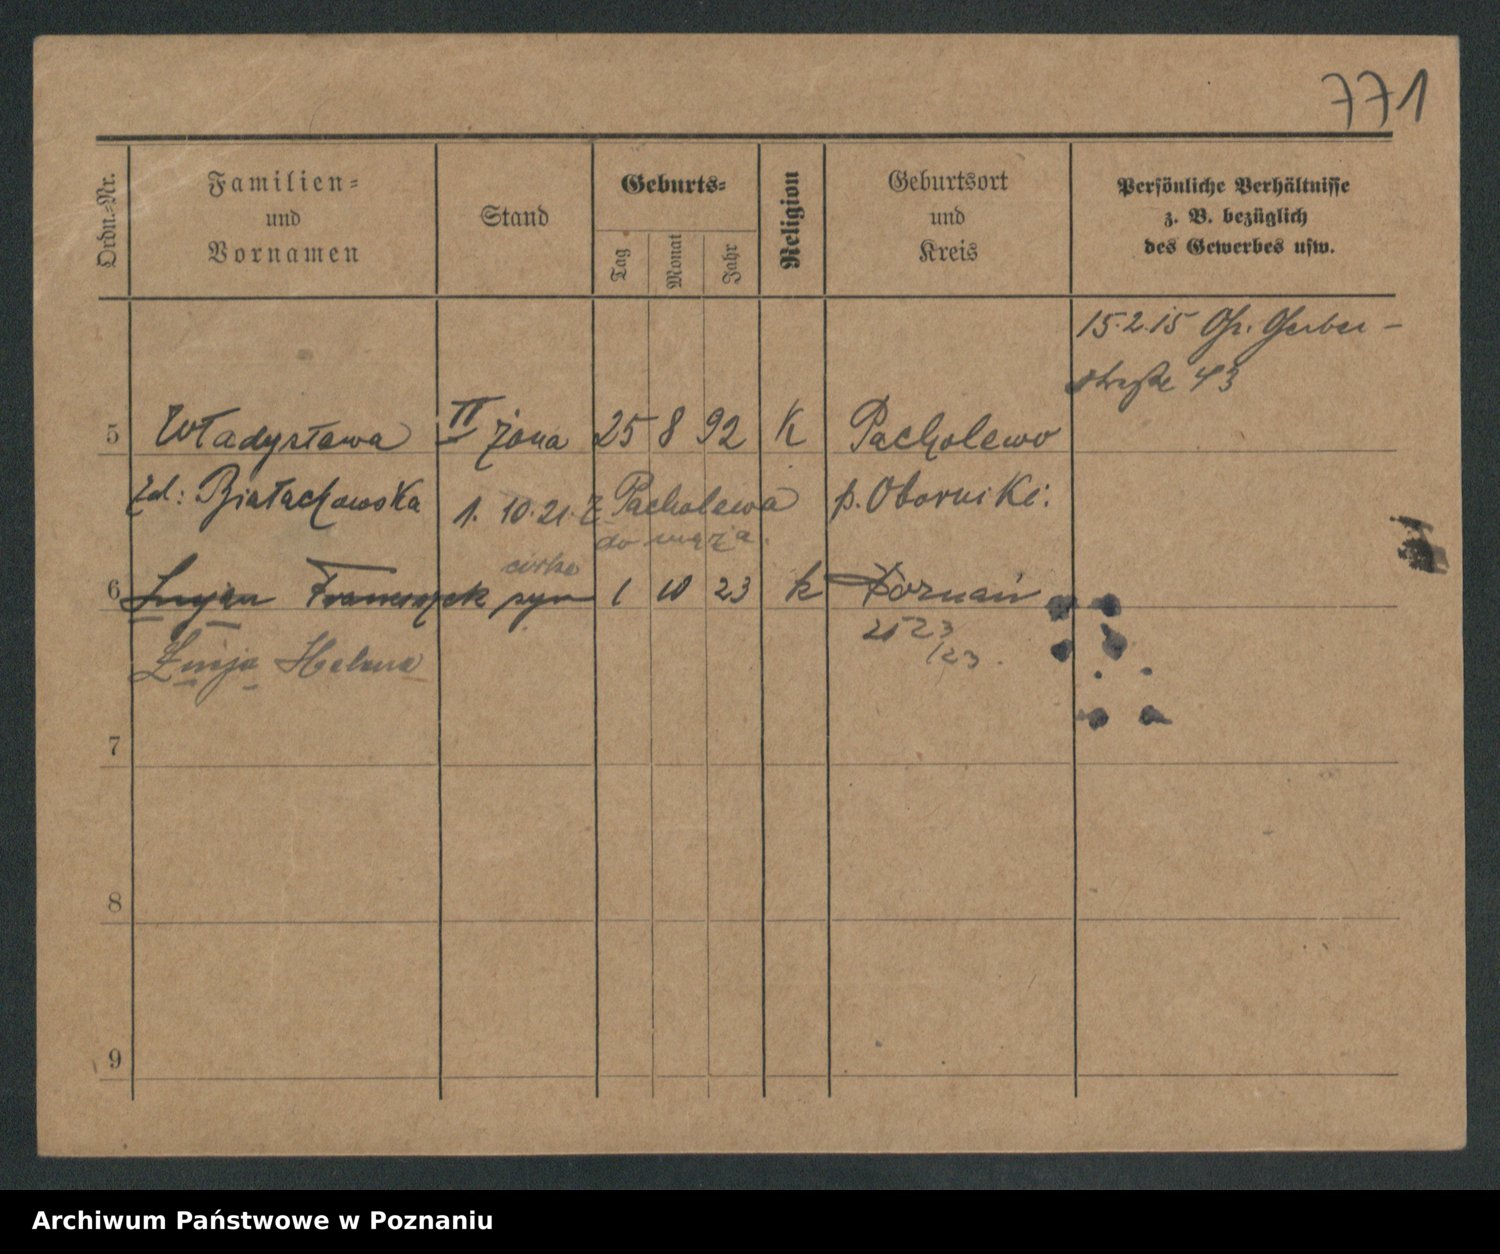 771
Ordn.-Nr.
Familien-
und
Vornamen
Stand
Geburts-
Tag
Monat
Jahr
Religion
Geburtsort
und
Kreis
Persönliche Verhältnisse
z. B. bezüglich
des Gewerbes usw.
15.2.15 Gr. Gerber-
straße 43
5 Władysława II żona 25 8 92 K Pacholewo
zd: Białachowska 1. 10.21. Z Pacholewa p. Oborniki.
do męża.
córka
6 Franciszek syn 1 10 23 k Poznań
23
/23.
Helena
7
8
9
Archiwum Państwowe w Poznaniu